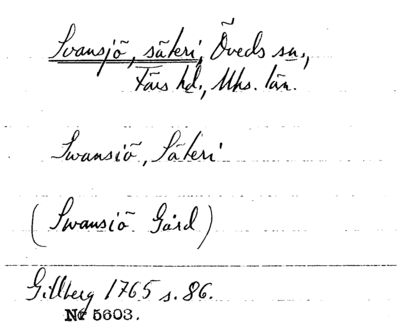 Svansjö, säteri, Öveds sn.,
Färs hd., Mhs. län.
Swansiö, Säteri
(Swansiö Gård)
Gillberg 1765 s. 86.
Nr 5603.